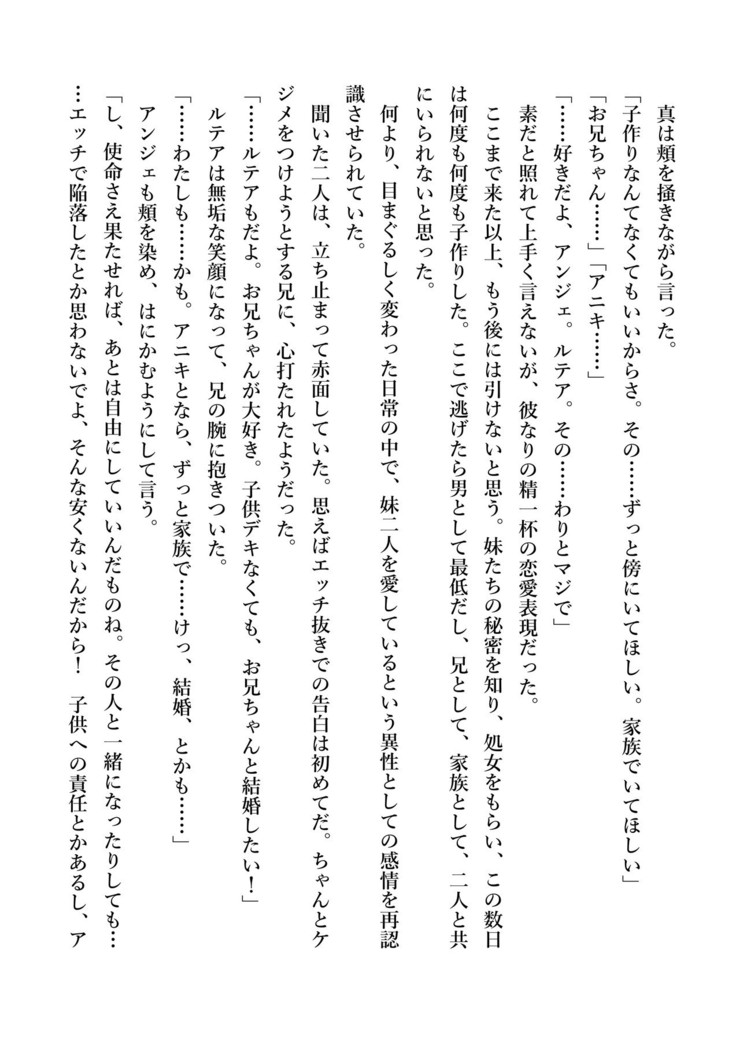 真は頬を掻きながら言った。
「子作りなんてなくてもいいからさ。その……ずっと傍にいてほしい。家族でいてほしい」
「お兄ちゃん……」「アニキ……」
「……好きだよ、アンジェ。ルテア。その……わりとマジで」
素だと照れて上手く言えないが、彼なりの精一杯の恋愛表現だった。
ここまで来た以上、もう後には引けないと思う。妹たちの秘密を知り、処女をもらい、この数日
は何度も何度も子作りした。ここで逃げたら男として最低だし、兄として、家族として、二人と共
にいられないと思った。
何より、目まぐるしく変わった日常の中で、妹二人を愛しているという異性としての感情を再認
識させられていた。
聞いた二人は、立ち止まって赤面していた。思えばエッチ抜きでの告白は初めてだ。ちゃんとケ
ジメをつけようとする兄に、心打たれたようだった。
「……ルテアもだよ。お兄ちゃんが大好き。子供デキなくても、お兄ちゃんと結婚したい！」
ルテアは無垢な笑顔になって、兄の腕に抱きついた。
「……わたしも……かも。アニキとなら、ずっと家族で……けっ、結婚、とかも……」
アンジェも頬を染め、はにかむようにして言う。
「し、使命さえ果たせれば、あとは自由にしていいんだものね。その人と一緒になったりしても…
…エッチで陥落したとか思わないでよ、そんな安くないんだから！　子供への責任とかあるし、ア